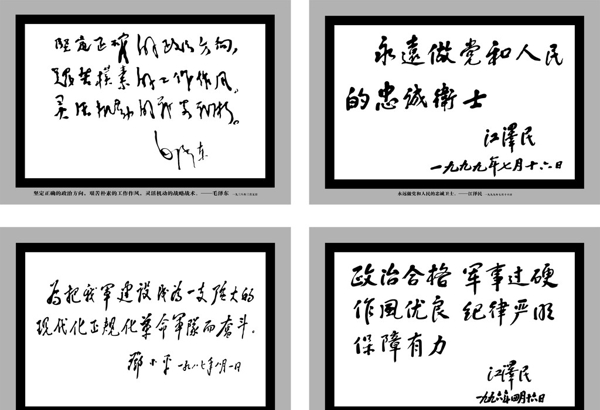 坚定正確的政治方向，
艰苦樸素的工作作风，
灵活机动的战略战术。
毛泽东
坚定正确的政治方向，艰苦朴素的工作作风，灵活机动的战略战术。——毛泽东
永遠做党和人民
的忠诚衛士
江澤民
一九九九年七月十六日
永远做党和人民的忠诚卫士。——江泽民
为把我軍建设成为一支强大的
现代化正规化革命軍隊而奋斗.
鄧小平 一九八七年八月一日
政治合格 军事过硬
作風优良 纪律严明
保障有力
江澤民
一九九六年四月十六日